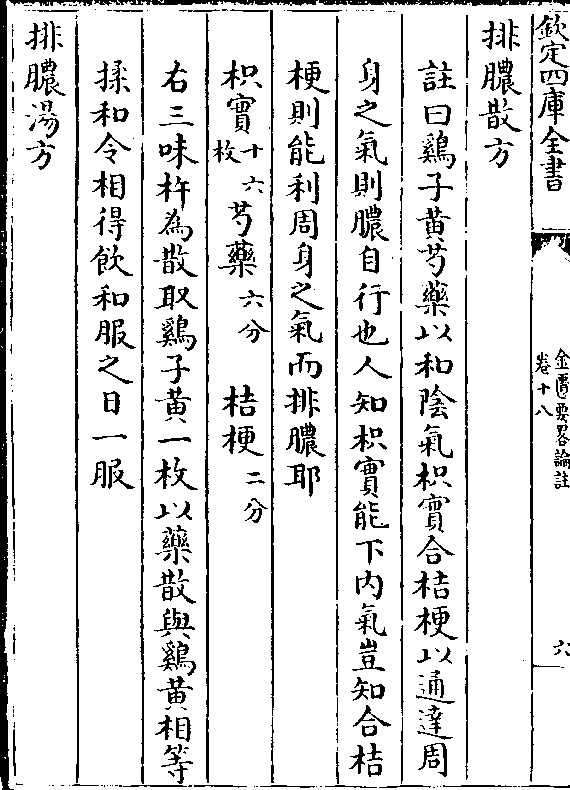 欽定四庫全書
金匱要畧論註
卷十八
六
排膿散方
註曰鷄子黄芍藥以和陰氣枳實合桔梗以通達周
身之氣則膿自行也人知枳實能下内氣豈知合桔
梗則能利周身之氣而排膿耶
枳實十六枚 芍藥六分 桔梗二分
右三味杵為散取鷄子黄一枚以藥散與鷄黄相等
揉和令相得飲和服之日一服
排膿湯方